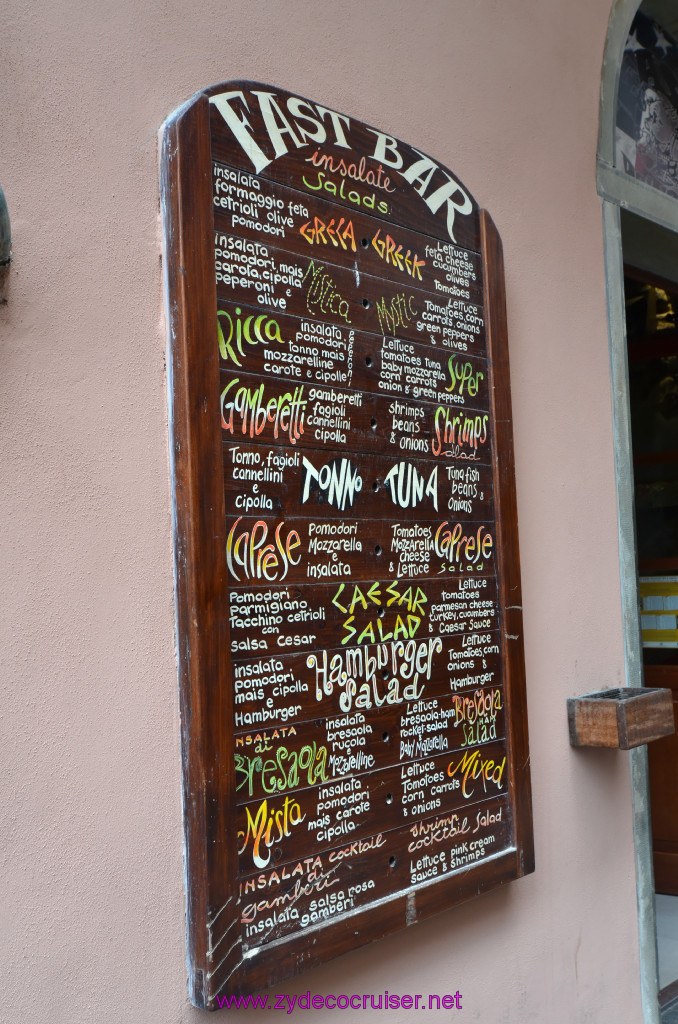 FAST BAR
insalate
Salads
insalata
formaggio feta
cetrioli olive
pomodori
GRECA
GREEK
Lettuce
feta cheese
cucumbers
olives
Tomatoes
insalata
pomodori, mais
carota, cipolla
peperoni e
olive
Mistica
Mystic
Lettuce
Tomatoes, corn
carrots, onions
green peppers
& olives
Ricca
insalata
pomodori
tonno mais
mozzarelline
carote e cipolle
Lettuce
tomatoes tuna
baby mozzarella
corn carrots
onion & green peppers
Super
Gamberetti
gamberetti
fagioli
cannellini
cipolla
shrimps
beans
& onions
Shrimps
Salad
Tonno, fagioli
cannellini
e
cipolla
TONNO
TUNA
Tuna fish
beans &
onions
CAPrese
Pomodori
Mozzarella
e
insalata
Tomatoes
Mozzarella
cheese
& Lettuce
CAPrese
Salad
Pomodori
Parmigiano
Tacchino cetrioli
con
salsa Cesar
CAESAR
SALAD
Lettuce
tomatoes
parmesan cheese
turkey, cucumbers
& Caesar Sauce
insalata
pomodori
mais cipolla
e
Hamburger
Hamburger
Salad
Lettuce
Tomatoes, corn
onions &
Hamburger
INSALATA
di
Bresaola
insalata
bresaola
rucola
e
Mozzarelline
Lettuce
bresaola-ham
rocket-salad
Baby Mozzarella
Bresaola
HAM
Salad
Mista
insalata
pomodori
mais carote
cipolla
Lettuce
Tomatoes
corn carrots
& onions
Mixed
INSALATA cocktail
di
gamberi
insalata salsa rosa
gamberi
shrimp
cocktail Salad
Lettuce pink cream
sauce & shrimps
www.zydecocruiser.net